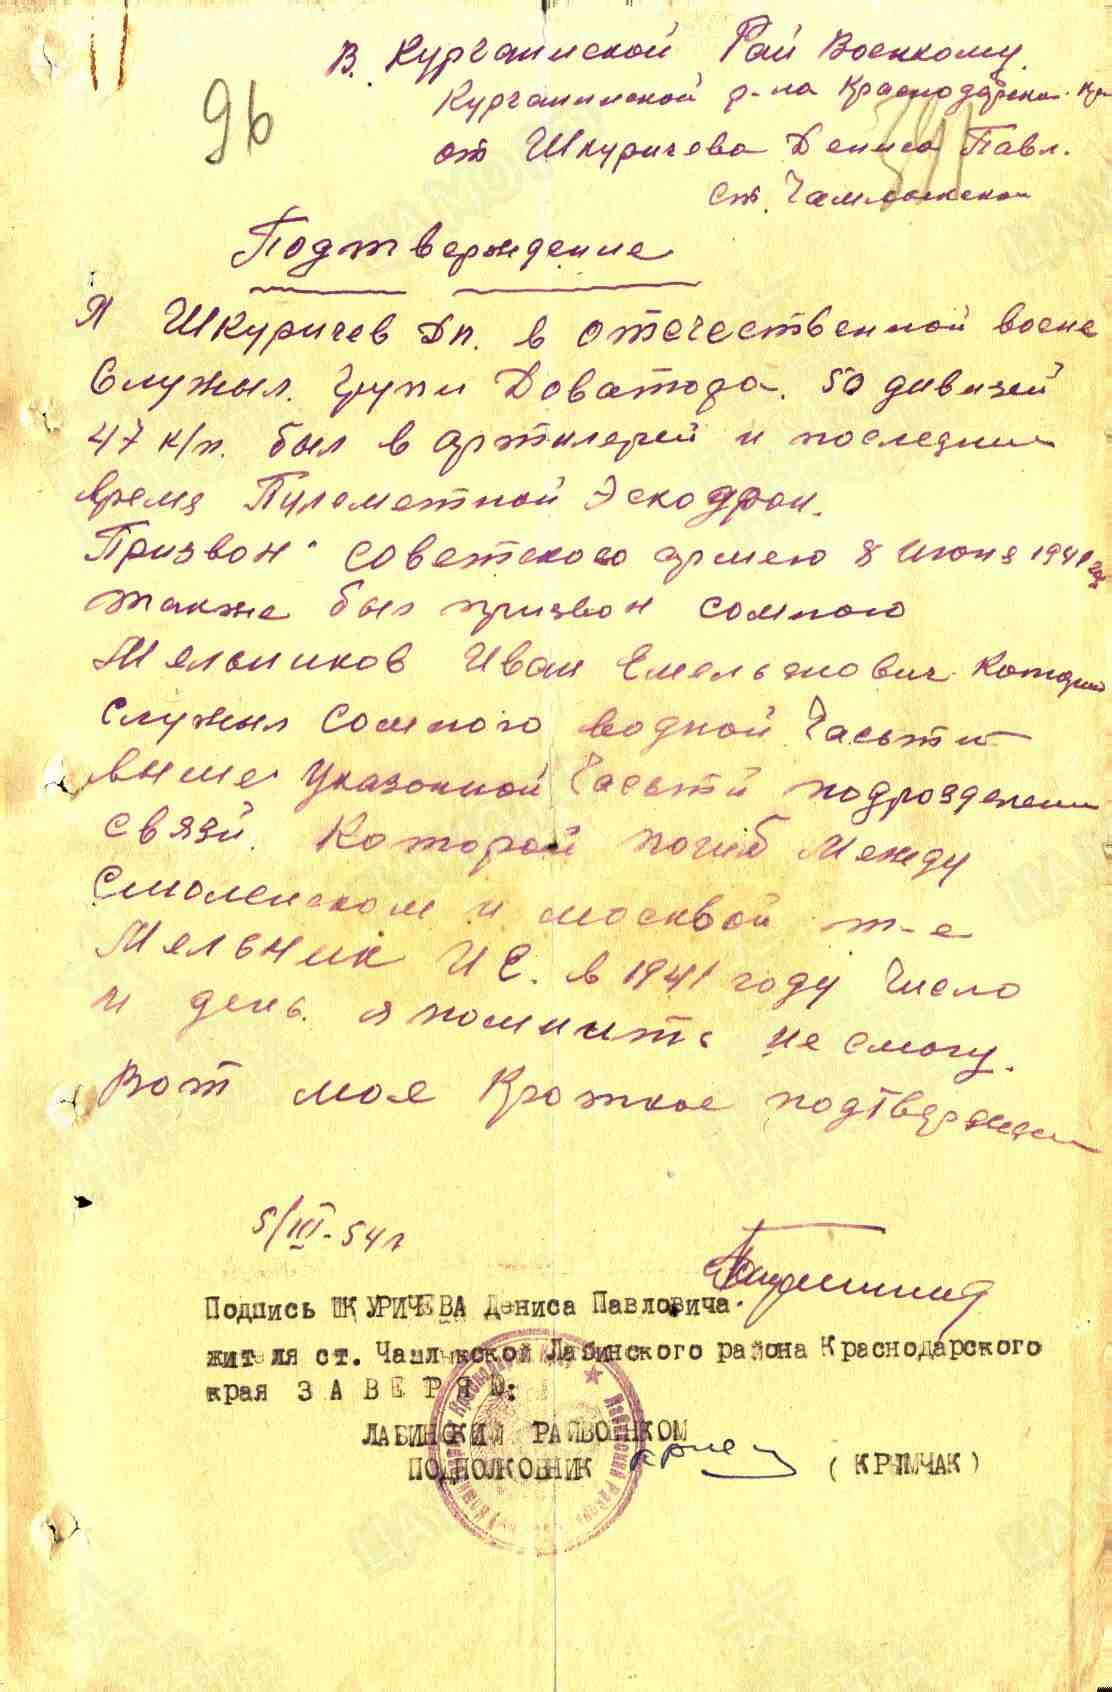 В. Курганиской Рай Военкому.
96
Курганинской р-на Краснодарска. Кр
341
от Шкуричева Дениса Павл.
ст. Чамлыкской
Подтверждение
Я Шкуричев Дп. в отечественной воене
Служыл. групи Доватора. 50 дивизей
47 к/п. был в артилерей и последние
время Пулеметной Эскодрон.
Призвон советскою армею 8 июня 1941 год
также был призвон сомною
Мельников Иван Емельянович Который
служыл сомною водной Часьти
выше Указонной Часьти подрозделении
связи. Которой погиб Между
Смоленском и москвой т-е
Мельник И Е. в 1941 году Число
и день я помнить не смогу.
Вот мое Кроткое подтверждени
5/III-54 г
Подпись ШКУРИЧЕВА Дениса Павловича.
жителя ст. Чамлыкской Лабинского района Краснодарского
края З А В Е Р Я Ю:
ЛАБИНСКИЙ РАЙВОЕНКОМ
ПОДПОЛКОВНИК ( КРЫМЧАК )